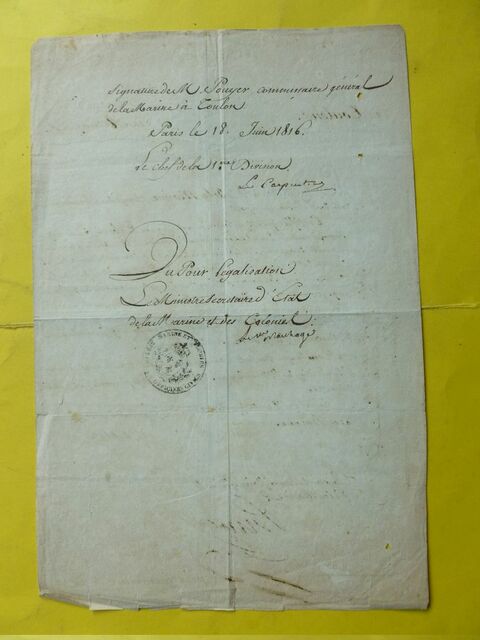 Signature de M. Pouyer commissaire général
de la Marine à Toulon
Paris le 18. Juin 1816.
Le Chef de la 1ere Division.
Le Carpentier
Vu Pour légalisation
Le Ministre Secretaire d'Etat
de la Marine et des Colonies.